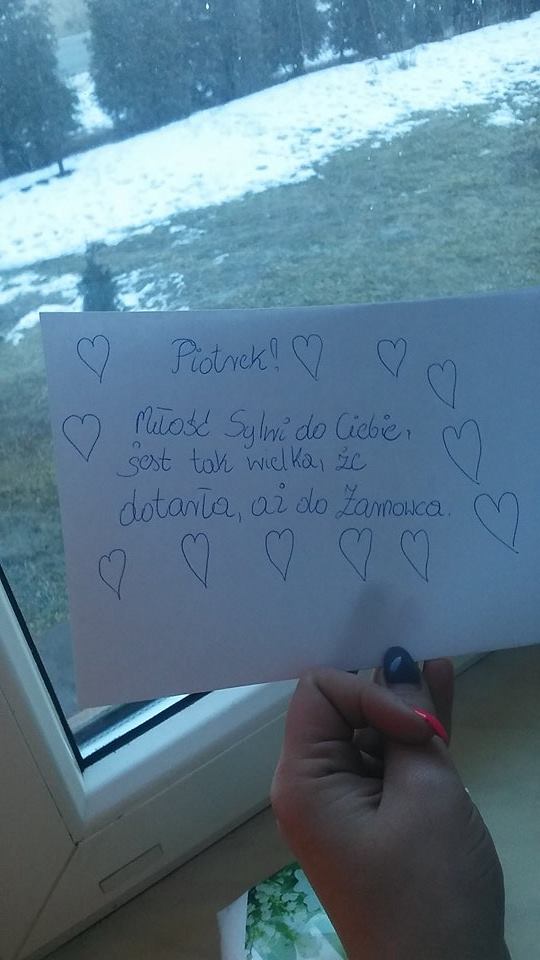 Piotrek!
Miłość Sylwi do Ciebie,
jest tak wielka, że
dotarła, aż do Żarnowca.